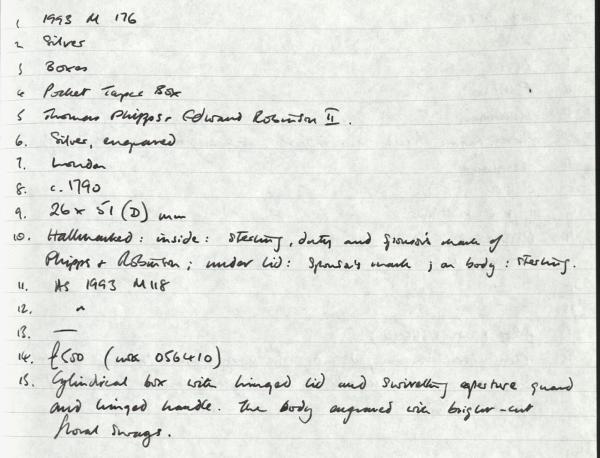 1 1993 M 176
2 Silver
3 Boxes
4 Pocket Taper Box
5 Thomas Phipps & Edward Robinson II.
6. Silver, engraved
7. London
8. c. 1790
9. 26 x 51 (D) mm
10. Hallmarked: inside: sterling, duty and sponsor's mark of
Phipps & Robinson; under lid: sponsor's mark; on body: sterling.
11. As 1993 M118
12. "
13. —
14. £500 (051410)
15. Cylindrical box with hinged lid and swivelling aperture guard
and hinged handle. The body engraved with bright-cut
floral swags.